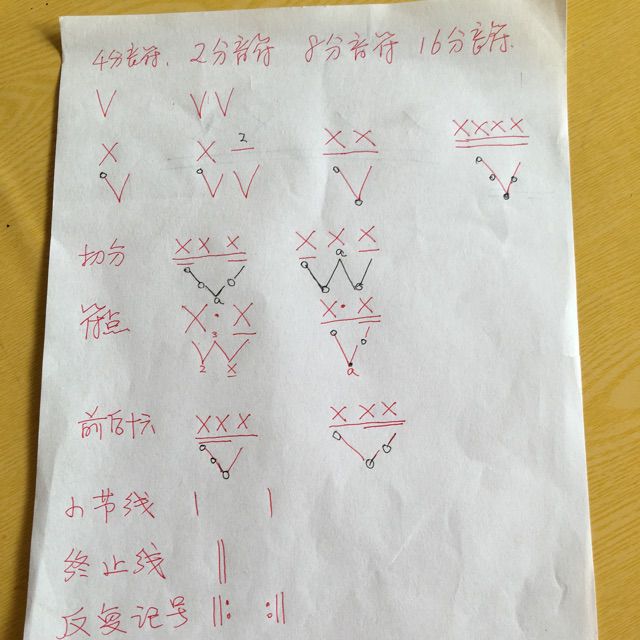 4分音符. 2分音符 8分音符 16分音符.
V VV
X X 2 X X XXXX
切分 X X X X X X
a a
符点 X · X X · X
3
2 X a
前后十六 X X X X X X
小节线 | |
终止线 ||
反复记号 ||: :||